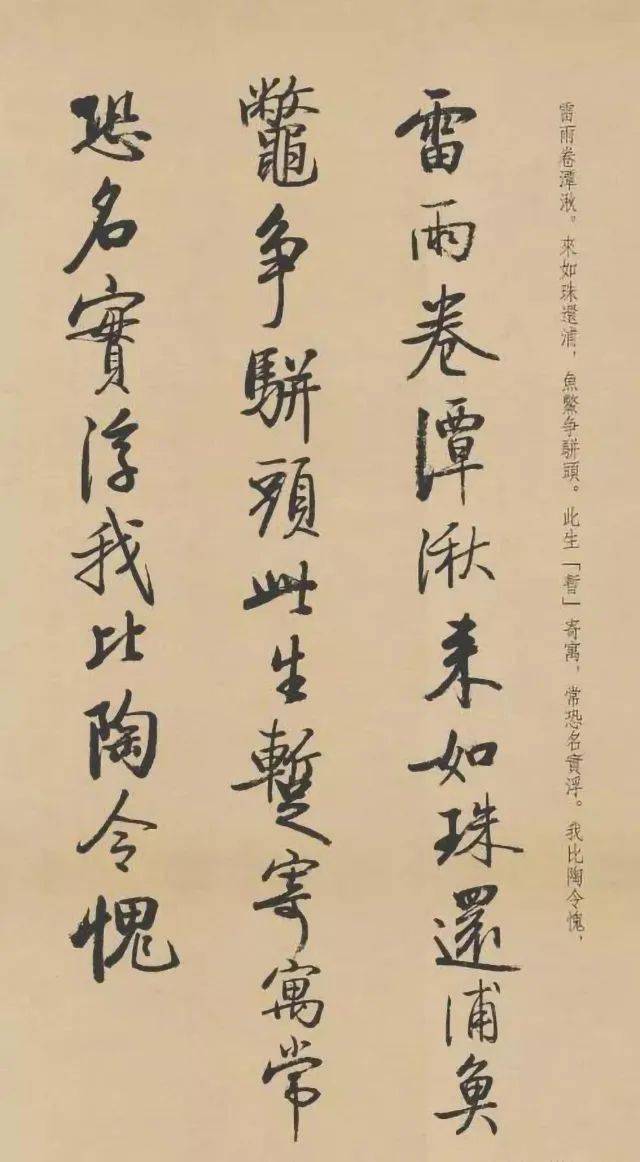 雷雨卷潭湫。來如珠還浦，魚鱉爭駢頭。此生「暫」寄寓，常恐名實浮。我比陶令愧，
雷雨卷潭湫来如珠還浦魚
鼈争駢頭此生蹔寄寓常
恐名實浮我比陶令愧